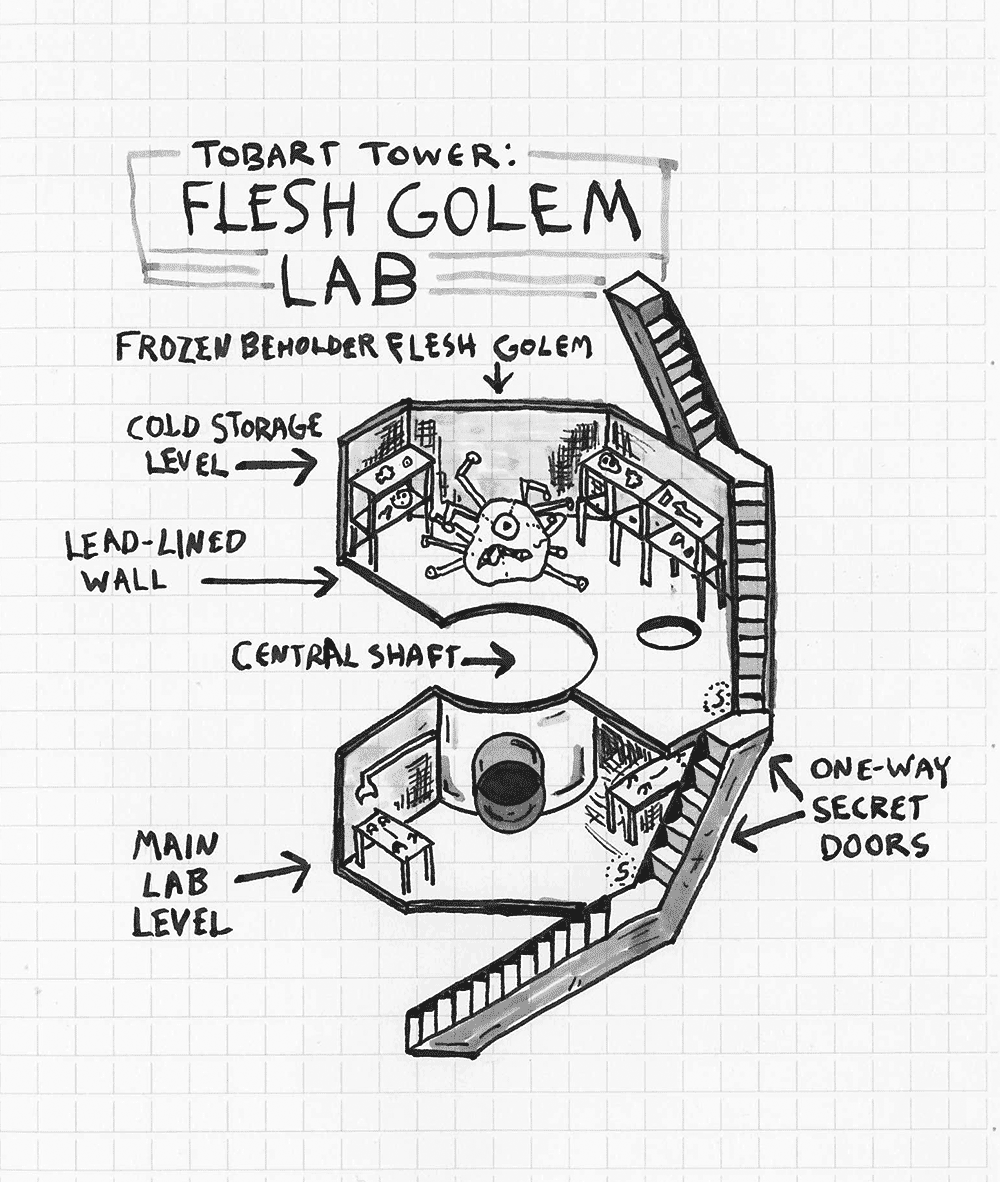 TOBART TOWER:
FLESH GOLEM
LAB
FROZEN BEHOLDER FLESH GOLEM
COLD STORAGE
LEVEL
LEAD-LINED
WALL
CENTRAL SHAFT
S
ONE-WAY
SECRET
DOORS
MAIN
LAB
LEVEL
S